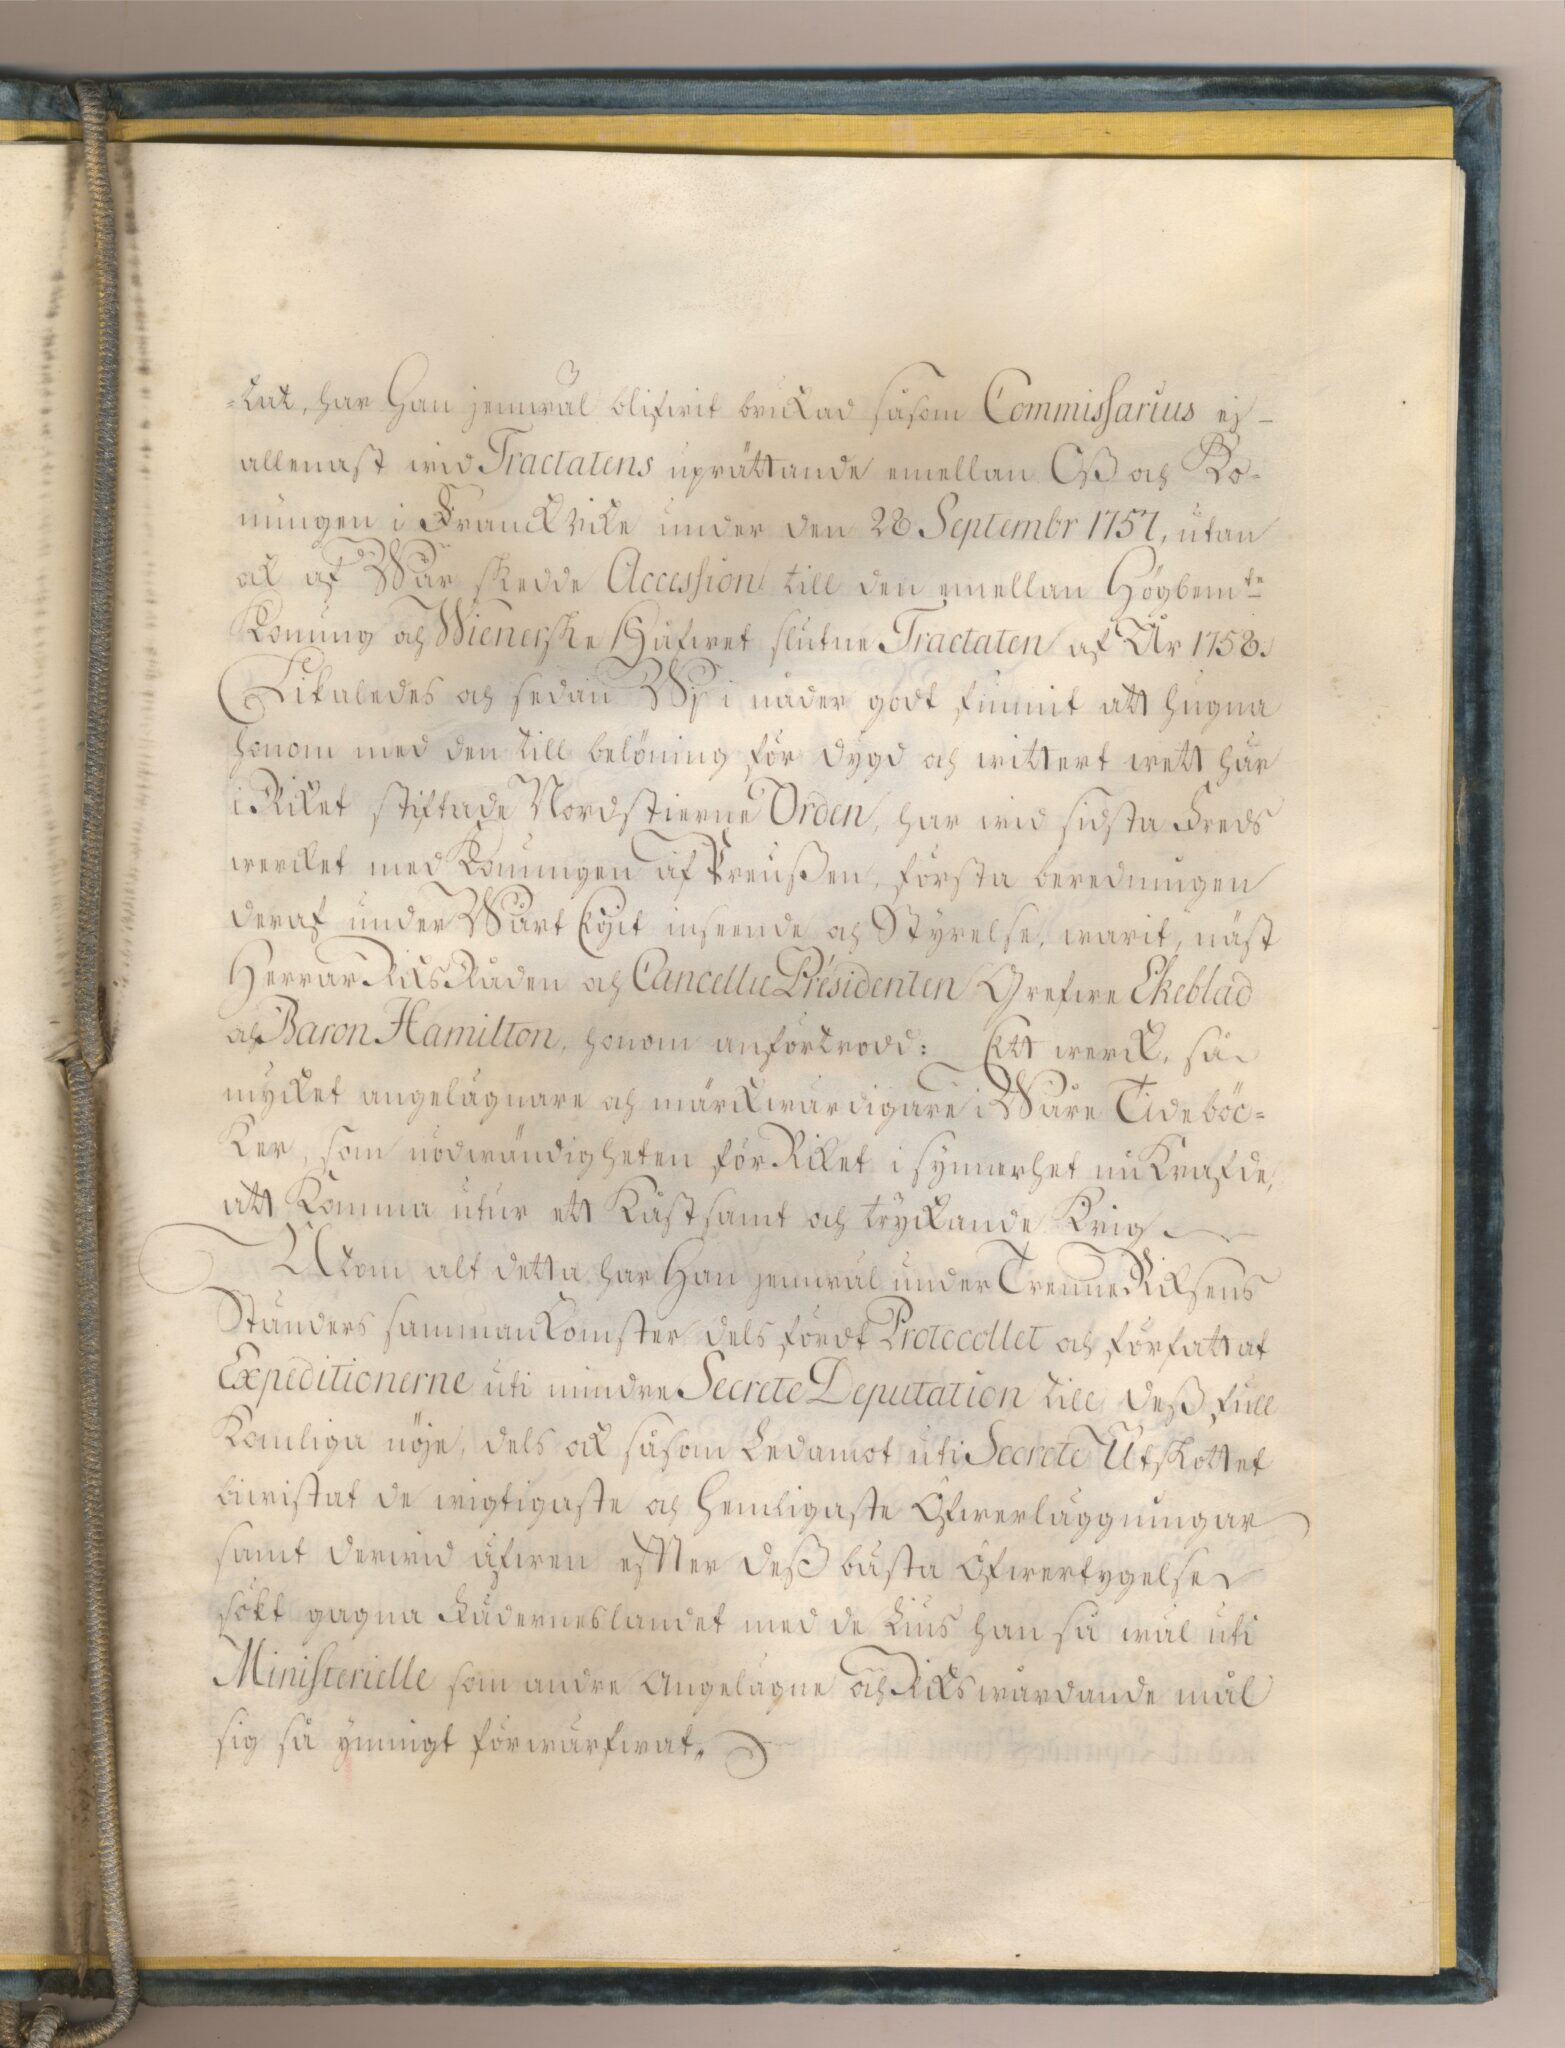 -tat, har Han jemwäl blifwit brukad såsom Commissarius ej
allenast wid Tractatens uprättande emellan Oß och Ko-
nungen i Franckrike under den 28 Septembr 1757, utan
ock af Wår skedde Accession till den emellan Högbemte
Konung och Wienerske Håfwet slutne Tractaten af År 1758.
Likaledes och sedan Wij i nåder godt funnit att hugna
honom med den till belöning för dygd och wittert wett här
i Riket stiftade Nordstierne Orden, har wid sidsta Freds
wercket med Konungen af Preußen, första beredningen
deraf under Wårt Egit inseende och Styrelse, warit, näst
Herrar RiksRåden och Cancellie Præsidenten Grefwe Ekeblad
och Baron Hamilton, honom anförtrodd: Ett werck, så
mycket angelägnare och märckwärdigare i Wåre Tideböc-
ker, som nödwändigheten för Riket i synnerhet nu krafde,
att komma utur ett kåstsamt och tryckande Krig.
Utom alt detta har Han jemwäl under Trenne Riksens
Ständers sammankomster dels fördt Protocollet och författat
Expeditionerne uti mindre Secrete Deputation till deß full
komliga nöje, dels ock såsom Ledamot uti Secrete Utskottet
biwistat de wigtigaste och hemligaste Öfwerläggningar
samt derwid äfwen efter deß bästa Öfwertygelse
sökt gagna Fäderneslandet med de Lius han så wäl uti
Ministerielle som andre Angelägne och Rikswårdande mål
sig så ymnigt förwärfwat.